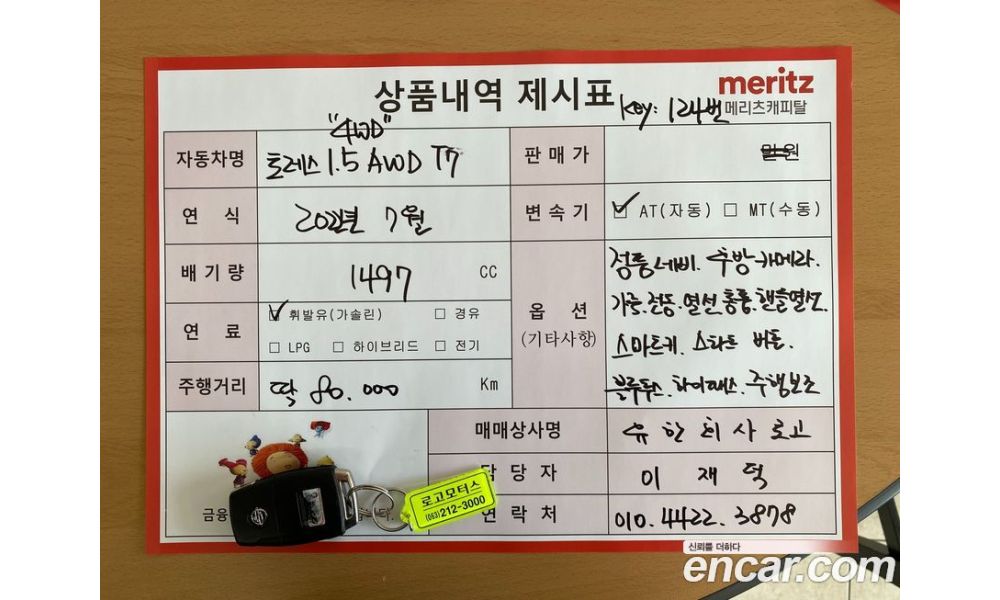 상품내역 제시표
meritz
메리츠캐피탈
Key: 124번
자동차명
"4WD"
토레스 1.5 AWD T7
판매가
만원
연식
2022년 7월
변속기
☑ AT(자동) ☐ MT(수동)
배기량
1497 CC
연료
☑ 휘발유(가솔린) ☐ 경유
☐ LPG ☐ 하이브리드 ☐ 전기
옵션
(기타사항)
정품네비. 후방카메라.
가죽.전동.열선통풍.핸들열선
스마트키. 스타트 버튼.
블루투스. 하이패스. 주행보조
주행거리
딱 80.000 Km
매매상사명
유한회사로고
담당자
이재덕
연락처
010.4422.3878
금융
로고모터스
(063)212-3000
신뢰를 더하다
encar.com